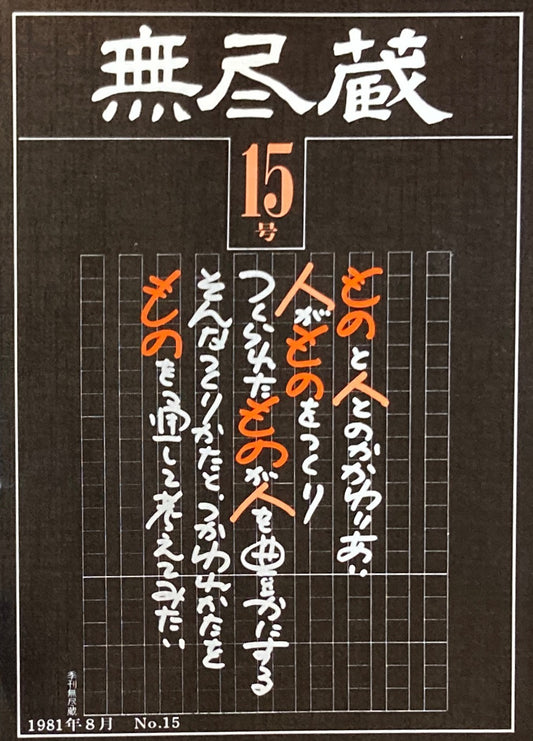 無尽蔵
15
号
ものと人とのかかわりあい
人がものをつくり
つくられたものが人を豊かにする
そんなつくりかたと、つかわれかたを
ものを通して考えてみたい
季刊無尽蔵
1981年8月 No.15